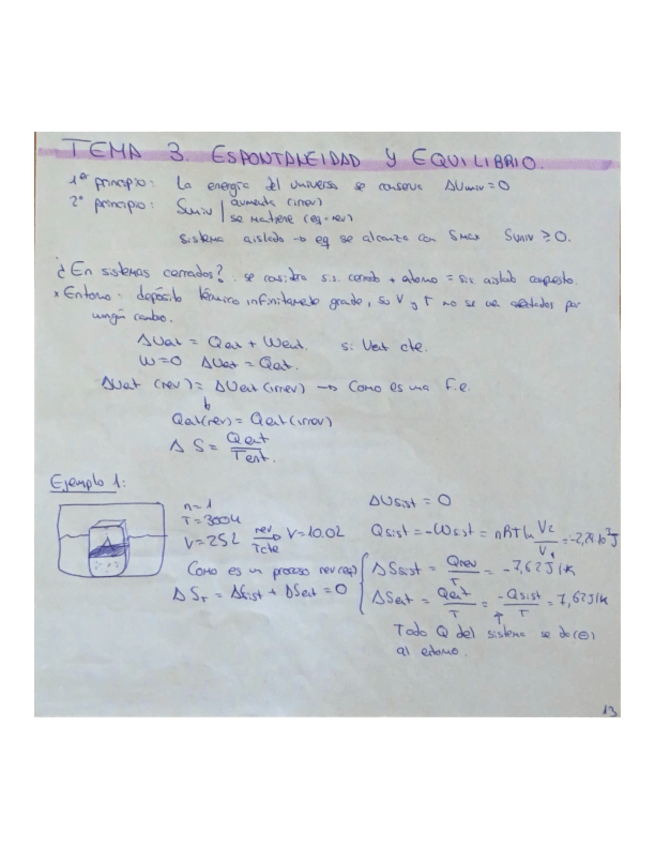 TEMA 3. ESPONTANEIDAD Y EQUILIBRIO.
1er principio: La energía del universo se conserva ΔUuniv = 0
2º principio: Suniv | aumenta (irrev)
se mantiene (eq-rev)
sistema aislado → eq se alcanza con Smax Suniv ≥ 0.
¿En sistemas cerrados? se considera sis. cerrado + = sis aislado compuesto.
* Entorno: depósito térmico infinitamente grande, su V y T no se ven afectados por
ningún cambio.
ΔUent = Qent + Went. si Vent cte.
W=0 ΔUent = Qent.
ΔUent (rev) = ΔUent (irrev) → Como es una f.e.
Qent(rev) = Qent(irrev)
ΔS = Qent / Tent.
Ejemplo 1:
n=1
T=300K
V=25L rev Tcte V=10.0L
Como es un proceso rev(eq)
ΔST = ΔSsist + ΔSent = 0
ΔUsist = 0
Qsist = -Wsist = nRT ln V2/V1 =
ΔSsist = Qrev / T = -7,62 J/K
ΔSent = Qent / T = -Qsist / T = 7,62 J/K
Todo Q del sistema se da (⊖)
al entorno.
13